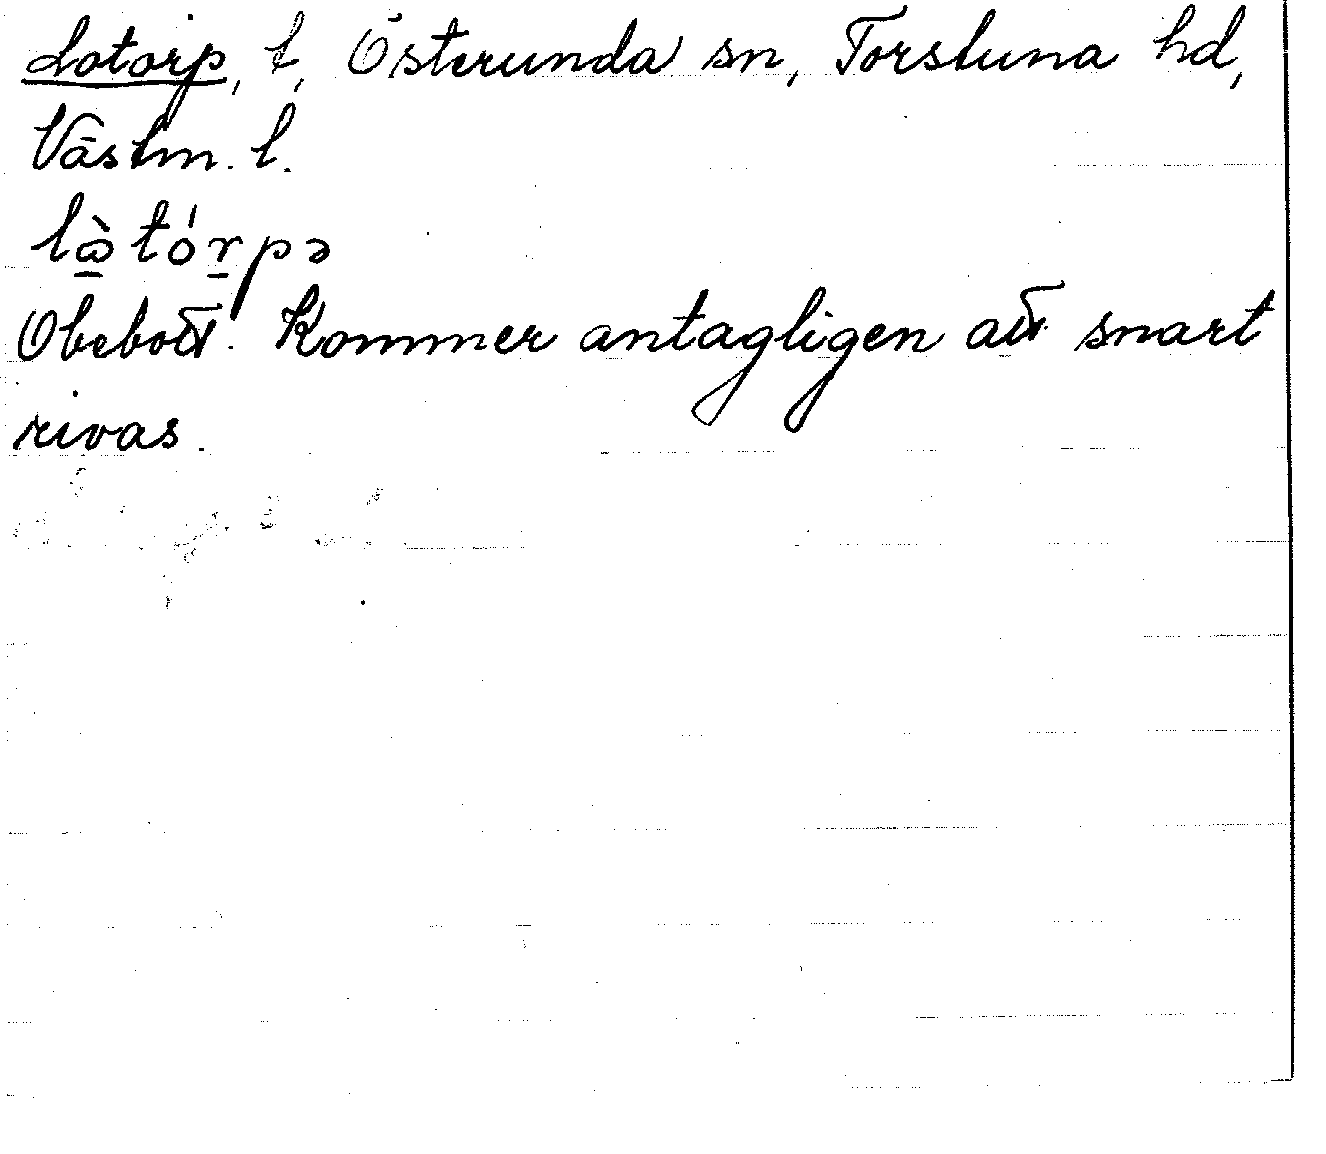 Lotorp, t, Österunda sn, Torstuna hd,
Västm. l.
làtórpə
Obebott. Kommer antagligen att snart
rivas.